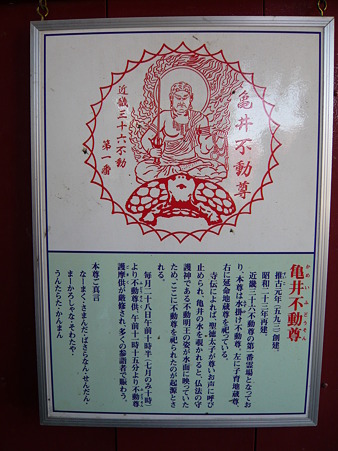 亀井不動尊
近畿三十六不動
第一番
亀井不動尊
推古元年(五九三)創建、
昭和二十三年再建。
近畿三十六不動尊の第一番霊場となってお
り、本尊は水掛け不動尊、左に子育地蔵尊、
右に延命地蔵尊を祀っている。
寺伝によれば、聖徳太子が尊いお声に呼び
止められ、亀井の水を覗かれると、仏法の守
護神である不動明王の姿が水面に映っていた
ため、ここに不動尊を祀られたのが起源とさ
れる。
毎月二十八日午前十時半(七月のみ十時)
より不動尊供、午前十一時十五分より不動尊
護摩供が厳修され、多くの参詣者で賑わう。
本尊ご真言
なーまく・さまんだ・ばさらなん・せんだん・
まーかろしゃな・そわたや・
うんたらた・かんまん